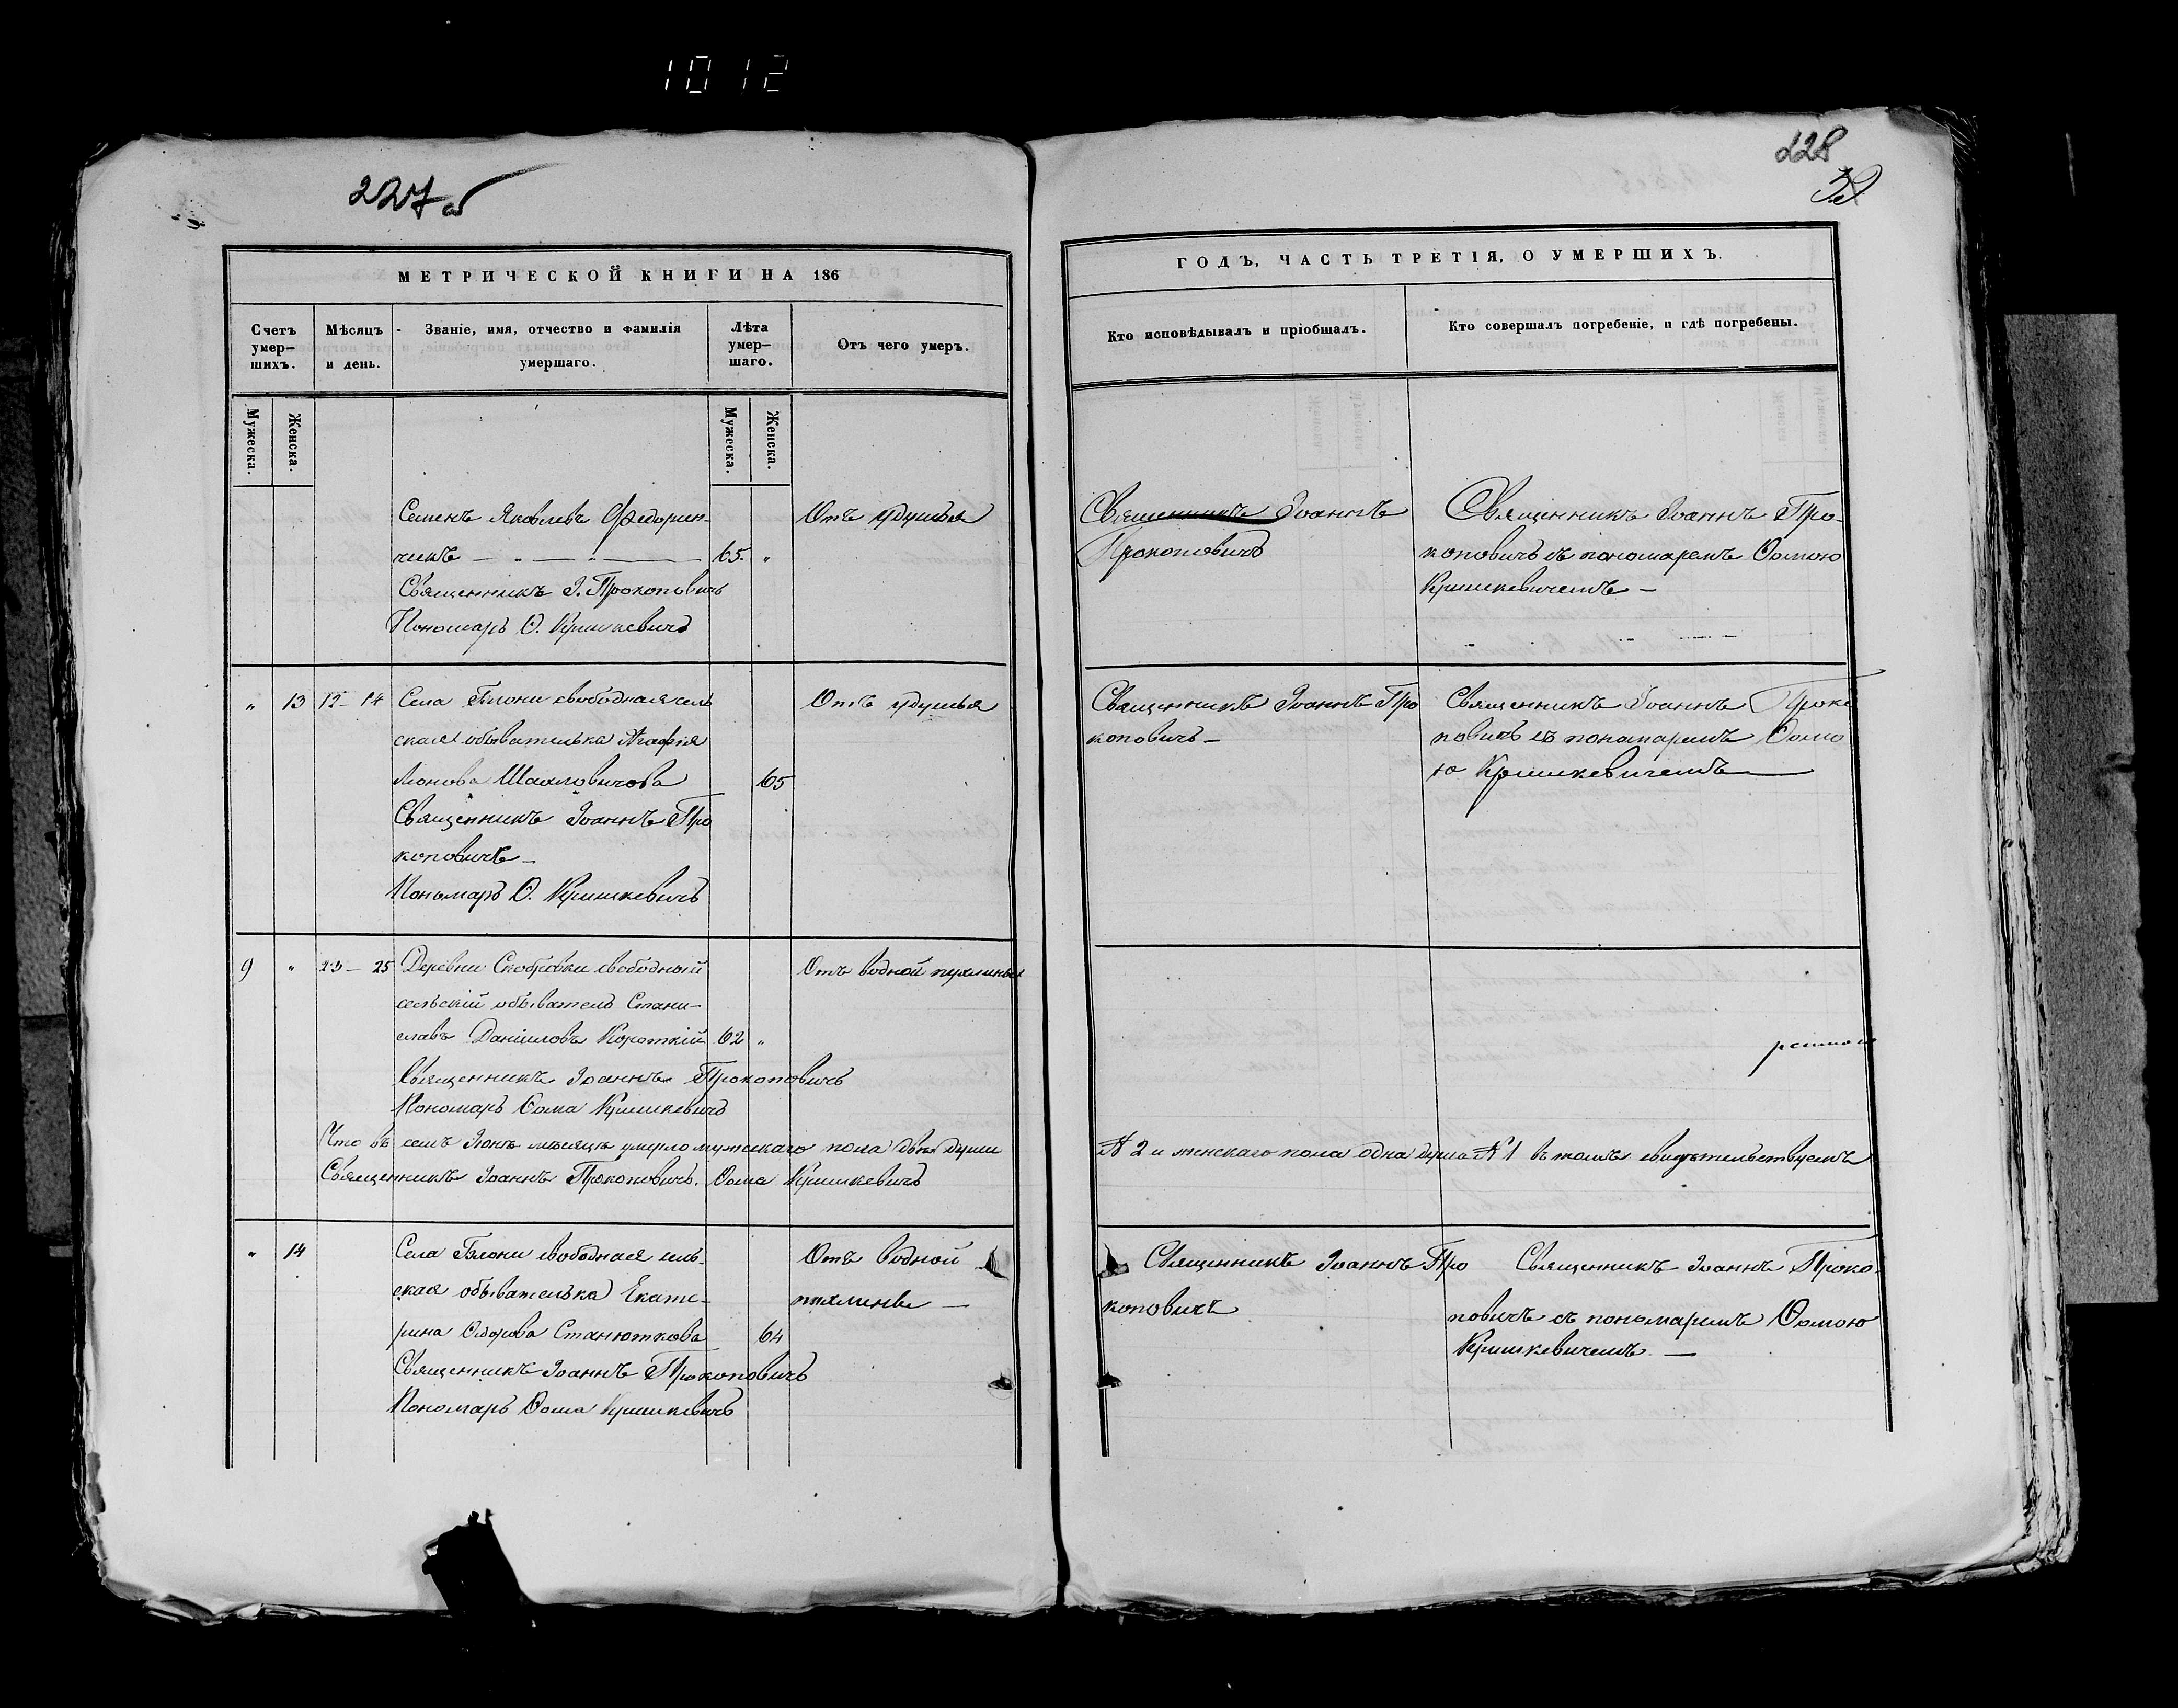 1012
227 об
228
МЕТРИЧЕСКОЙ КНИГИ НА 186
Счетъ умер-шихъ.
Мѣсяцъ и день.
Званіе, имя, отчество и фамилія умершаго.
Лѣта умер-шаго.
Отъ чего умеръ.
Мужеска.
Женска.
Мужеска.
Женска.
Семенъ Яковлевъ Федорин-
чикъ — „ — „ — 65. „
Отъ удушья
Священникъ І. Прокоповичъ
Пономарь Ѳ. Кришкевичъ
„ 13 12-14 Села Блони свободная сель
Отъ удушья
ская обывателька Агафія
Шахловичова 65
Священникъ Іоаннъ Про
коповичъ —
Пономарь Ѳ. Кришкевичъ
9 „ 23-25 Деревни свободный
Отъ водной пухлины
сельскій обыватель Стани-
славъ Даніиловъ Короткій 62 „
Священникъ Іоаннъ Прокоповичъ
Пономарь Ѳома Кришкевичъ
Что въ семъ Іюнѣ мѣсяцѣ умерло мужескаго пола двѣ души
Священникъ Іоаннъ Прокоповичъ. Ѳома Кришкевичъ
„ 14 Села Блони свободная сель-
Отъ водной
ская обывателька Екате-
пухлины —
рина Станюткова 64
Священникъ Іоаннъ Прокоповичъ
Пономарь Ѳома Кришкевичъ
ГОДЪ, ЧАСТЬ ТРЕТІЯ, О УМЕРШИХЪ.
Кто исповѣдывалъ и пріобщалъ.
Кто совершалъ погребеніе, и гдѣ погребены.
Священникъ Іоаннъ
Прокоповичъ
Священникъ Іоаннъ Про-
коповичъ съ пономаремъ Ѳомою
Кришкевичемъ —
Священникъ Іоаннъ Про
коповичъ —
Священникъ Іоаннъ Проко
повичъ съ пономаремъ Ѳомо
ю Кришкевичемъ —
№ 2 и женскаго пола одна душа № 1 въ томъ свидѣтельствуемъ
Священникъ Іоаннъ Про
коповичъ
Священникъ Іоаннъ Проко-
повичъ съ пономаремъ Ѳомою
Кришкевичемъ. —